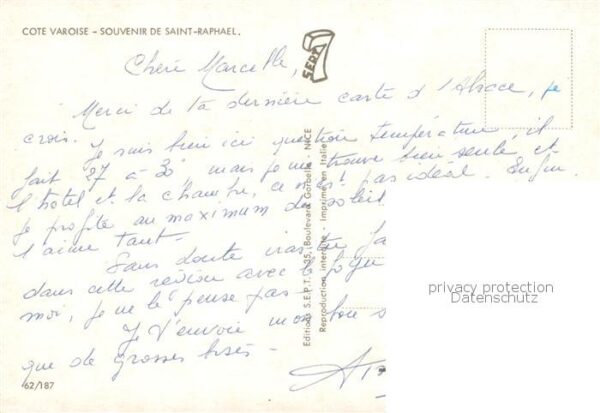 COTE VAROISE - SOUVENIR DE SAINT-RAPHAEL.
Chère Marcelle,
Merci de ta dernière carte d'Alsace, je
crois. Je suis bien ici question température, il
fait 27 à 30, mais je me trouve bien seule et
l'hôtel et la chambre, ce n'est pas idéal. Enfin
je profite au maximum du soleil
l'aime tant-
Sans doute iras-tu
dans cette région avec
moi, je ne le pense pas-
Je t'envoie mon
que de grosses bises-
S.E.P.T
Editions S.E.P.T. - 35, Boulevard - NICE
Reproduction interdite - Imprimé en Italie
62/187
privacy protection
Datenschutz